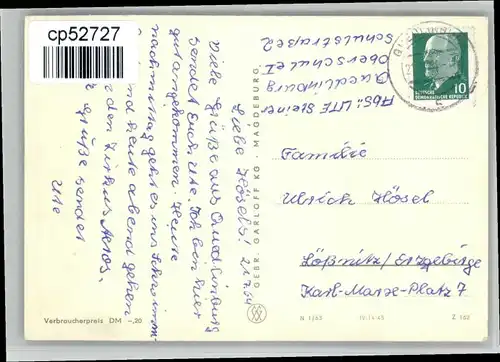 cp52727
Abs.: Ute Steiner
Quedlinburg
Oberschule I
Schulstraße 2
21.7.64
Liebe Hösels!
Viele Grüße aus Quedlinburg
sendet Euch Ute. Ich bin hier
gut angekommen. Heute
nachmittag geht es ins Schwimm-
und heute abend gehen
den Zirkus Aeros.
Grüße sendet
Ute
GEBR. GARLOFF KG · MAGDEBURG
10
DEUTSCHE
DEMOKRATISCHE REPUBLIK
Familie
Ulrich Hösel
Lößnitz/Erzgebirge
Karl-Marx-Platz 7
Verbraucherpreis DM -,20
N 1/63
IV/14/45
Z 162